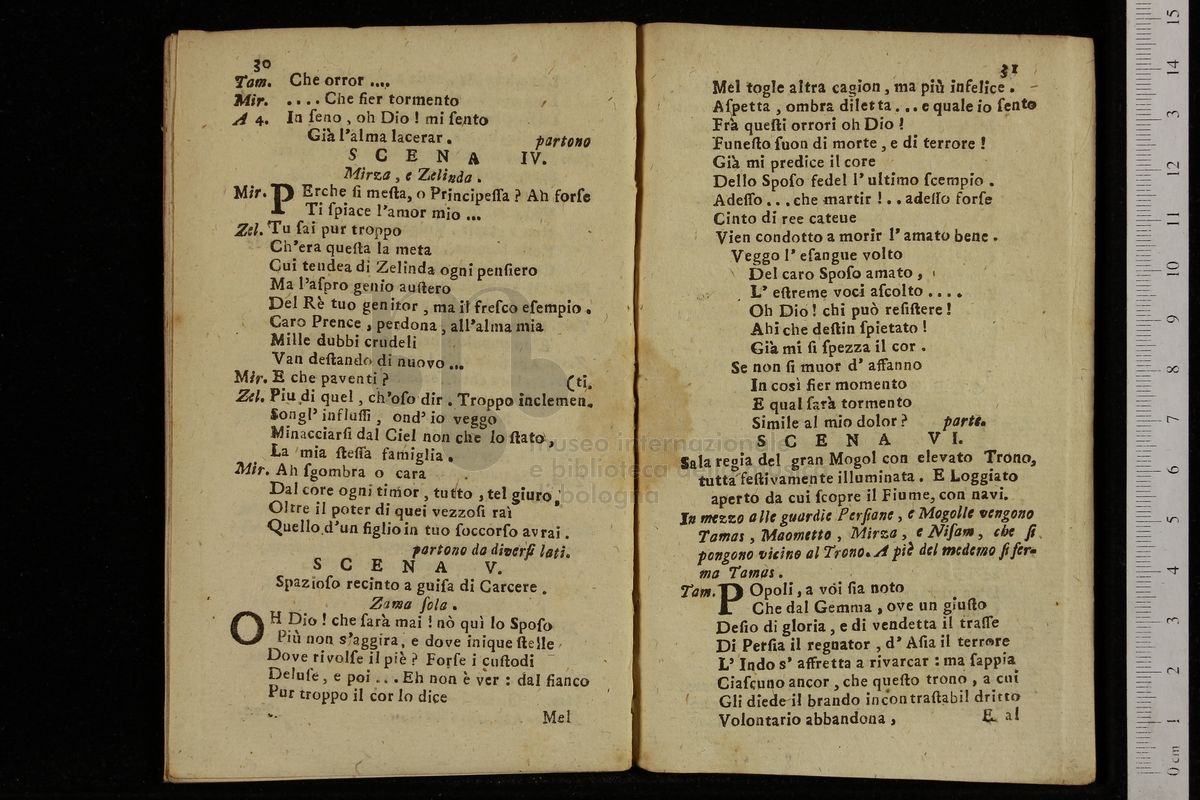 30
Tam. Che orror ....
Mir. .... Che fier tormento
A 4. In ſeno , oh Dio ! mi ſento
Già l'alma lacerar . partono
S C E N A IV.
Mirza , e Zelinda .
Mir. PErche ſi meſta, o Principeſſa ? Ah forſe
Ti ſpiace l'amor mio ...
Zel. Tu ſai pur troppo
Ch'era queſta la meta
Cui tendea di Zelinda ogni penſiero
Ma l'aſpro genio auſtero
Del Rè tuo genitor , ma il freſco eſempio .
Caro Prence , perdona , all'alma mia
Mille dubbi crudeli
Van deſtando di nuovo ...
Mir. E che paventi ? (ti.
Zel. Piu di quel , ch'oſo dir . Troppo inclemen.
Songl' influſſi , ond' io veggo
Minacciarſi dal Ciel non che lo ſtato ,
La mia ſteſſa famiglia .
Mir. Ah ſgombra o cara
Dal core ogni timor , tutto , tel giuro ,
Oltre il poter di quei vezzoſi raì
Quello d'un figlio in tuo ſoccorſo avrai .
partono da diverſi lati.
S C E N A V.
Spazioſo recinto a guiſa di Carcere .
Zama ſola .
OH Dio ! che ſarà mai ! nò quì lo Spoſo
Più non s'aggira, e dove inique ſtelle
Dove rivolſe il piè ? Forſe i cuſtodi
Deluſe , e poi ... Eh non è ver : dal fianco
Pur troppo il cor lo dice
Mel
31
Mel togle altra cagion , ma più infelice .
Aſpetta , ombra diletta ... e quale io ſento
Frà queſti orrori oh Dio !
Funeſto ſuon di morte , e di terrore !
Già mi predice il core
Dello Spoſo fedel l' ultimo ſcempio .
Adeſſo ... che martir ! .. adeſſo forſe
Cinto di ree cateue
Vien condotto a morir l' amato bene .
Veggo l' eſangue volto
Del caro Spoſo amato ,
L' eſtreme voci aſcolto ....
Oh Dio ! chi può reſiſtere !
Ahi che deſtin ſpietato !
Già mi ſi ſpezza il cor .
Se non ſi muor d' affanno
In così fier momento
E qual ſarà tormento
Simile al mio dolor ? parte.
S C E N A VI.
Sala regia del gran Mogol con elevato Trono,
tutta feſtivamente illuminata . E Loggiato
aperto da cui ſcopre il Fiume, con navi.
In mezzo alle guardie Perſiane , e Mogolle vengono
Tamas , Maometto , Mirza , e Niſam , che ſi
pongono vicino al Trono. A piè del medemo ſi fer-
ma Tamas .
Tam. POpoli , a voi ſia noto
Che dal Gemma , ove un giuſto
Deſio di gloria , e di vendetta il traſſe
Di Perſia il regnator , d' Aſia il terrore
L' Indo s' affretta a rivarcar : ma ſappia
Ciaſcuno ancor , che queſto trono , a cui
Gli diede il brando incontraſtabil dritto
Volontario abbandona ,
E al
museo internazionale
e biblioteca della musica
di bologna
15
14
13
12
11
10
9
8
7
6
5
4
3
2
1
0 cm